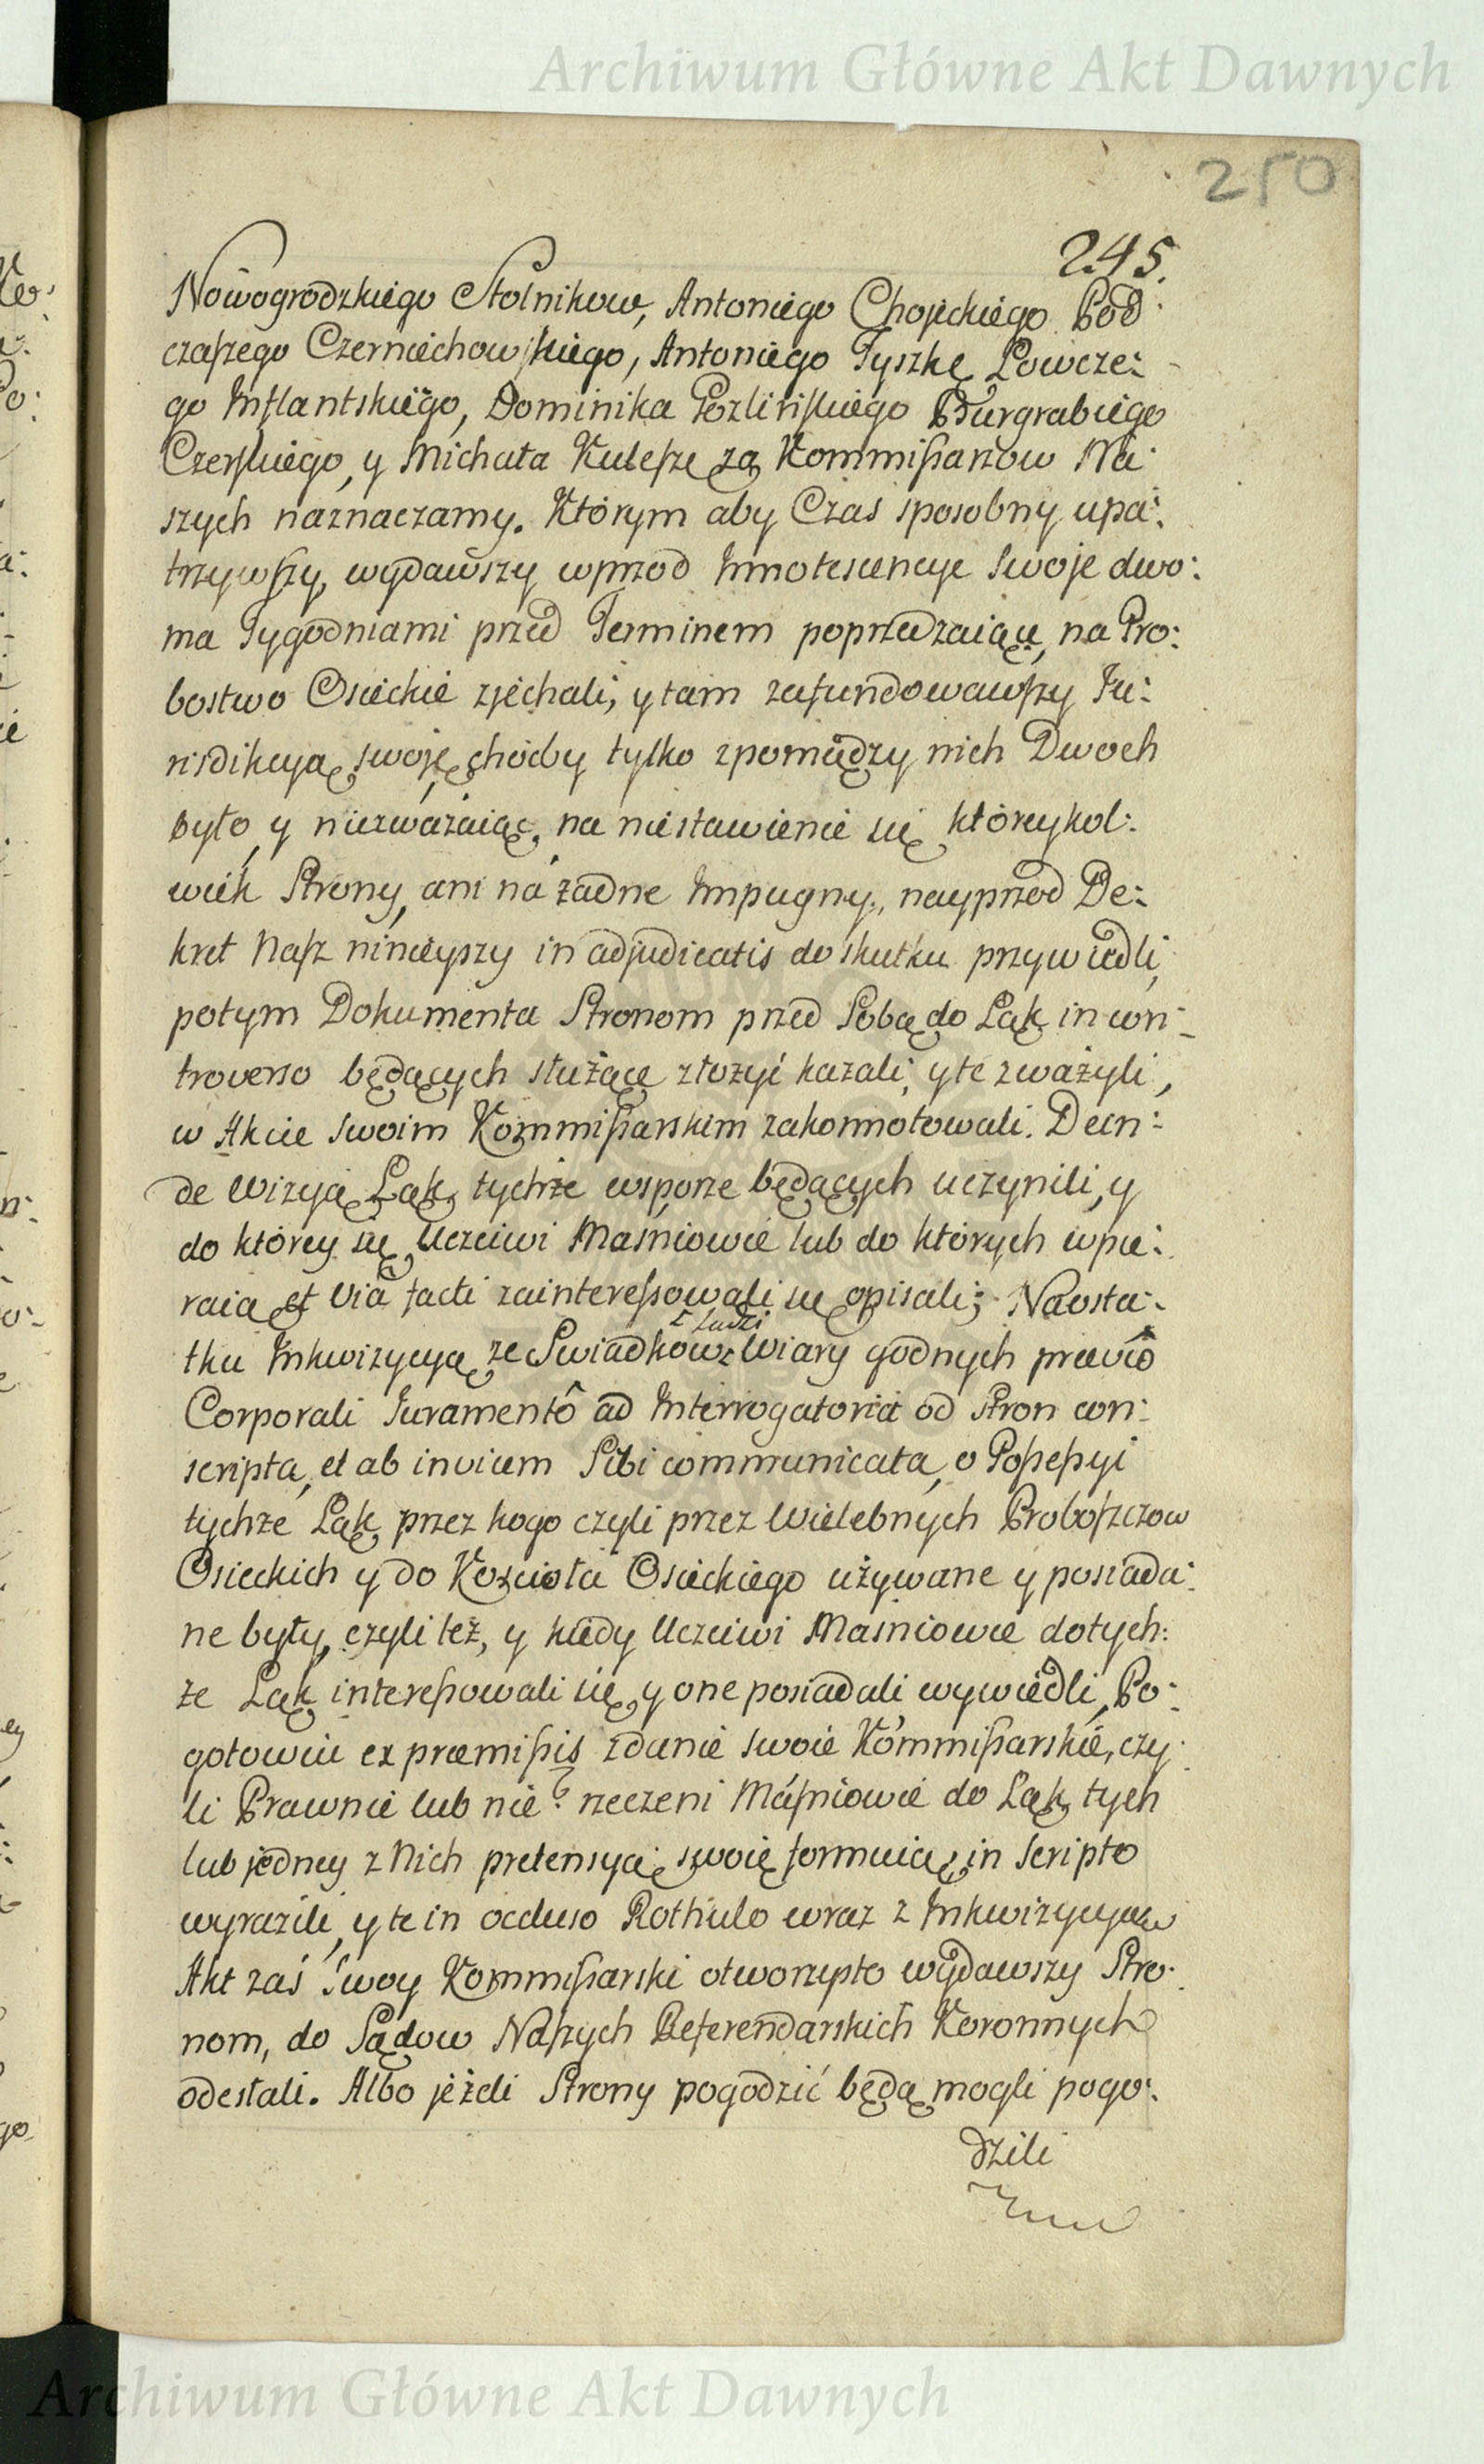 Archiwum Główne Akt Dawnych
250
245.
Nowogrodzkiego Stolnikow, Antoniego Chojeckiego Pod:
czaszego Czerniechowskiego, Antoniego Tyszkę Łowcze:
go Inflantskiego, Dominika Pozlińskiego Burgrabiego
Czerskiego, y Michała Kuleszę za Kommissarzow Na:
szych naznaczamy. Którym aby Czas sposobny upa:
trzywszy, wydawszy wprzod Innotescencye swoje dwo:
ma Tygodniami przed Terminem poprzedzaiące, na Pro:
bostwo Osieckie zjechali, y tam zafundowawszy Ju:
risdikcyą swoję choćby tylko zpomiędzy nich Dwoch
było, y niezważaiąc, na niestawienie się ktoreykol:
wiek Strony, ani na żadne Impugny, nayprzod De:
kret Nasz ninieyszy in adjudicatis do skutku przywiedli,
potym Dokumenta Stronom przed Sobą do Łąk in con:
troverso będących służące złożyć kazali, y te zważyli,
w Akcie swoim Kommissarskim zakonnotowali. Dein:
de Wizyą Łąk, tychże wsporze będących uczynili, y
do ktorey się Uczciwi Maśniowie lub do których wpie:
raią et via facti zainteressowali się opisali; Naosta:
z Ludzi
tku Inkwizycyą ze Swiadkow z Wiary godnych prævio
Corporali Juramentô ad Interrogatoria od Stron con:
scripta, et ab invicem Sibi communicata, o Possessyi
tychże Łąk, przez kogo czyli przez Wielebnych Proboszczow
Osieckich y do Kościoła Osieckiego używane y posiada:
ne były, czyli też, y kiedy Uczciwi Masniowie dotych:
że Łąk interessowali się, y one posiadali wywiedli, Po:
gotowiu ex præmissis zdanie swoie Kommissarskie, czy:
li Prawnie lub nie? rzeczeni Maśniowie do Łąk, tych
lub jedney z Nich pretensyą swoię formuią, in scripto
wyrazili, y te in occluso Rothulo wraz z Inkwizycyą
Akt zaś swoy Kommissarski otworzysto wydawszy Stro:
nom, do Sądow Naszych Referendarskich Koronnych
odesłali. Albo jeżeli Strony pogodzić będą mogli pogo:
dzili
Archiwum Główne Akt Dawnych